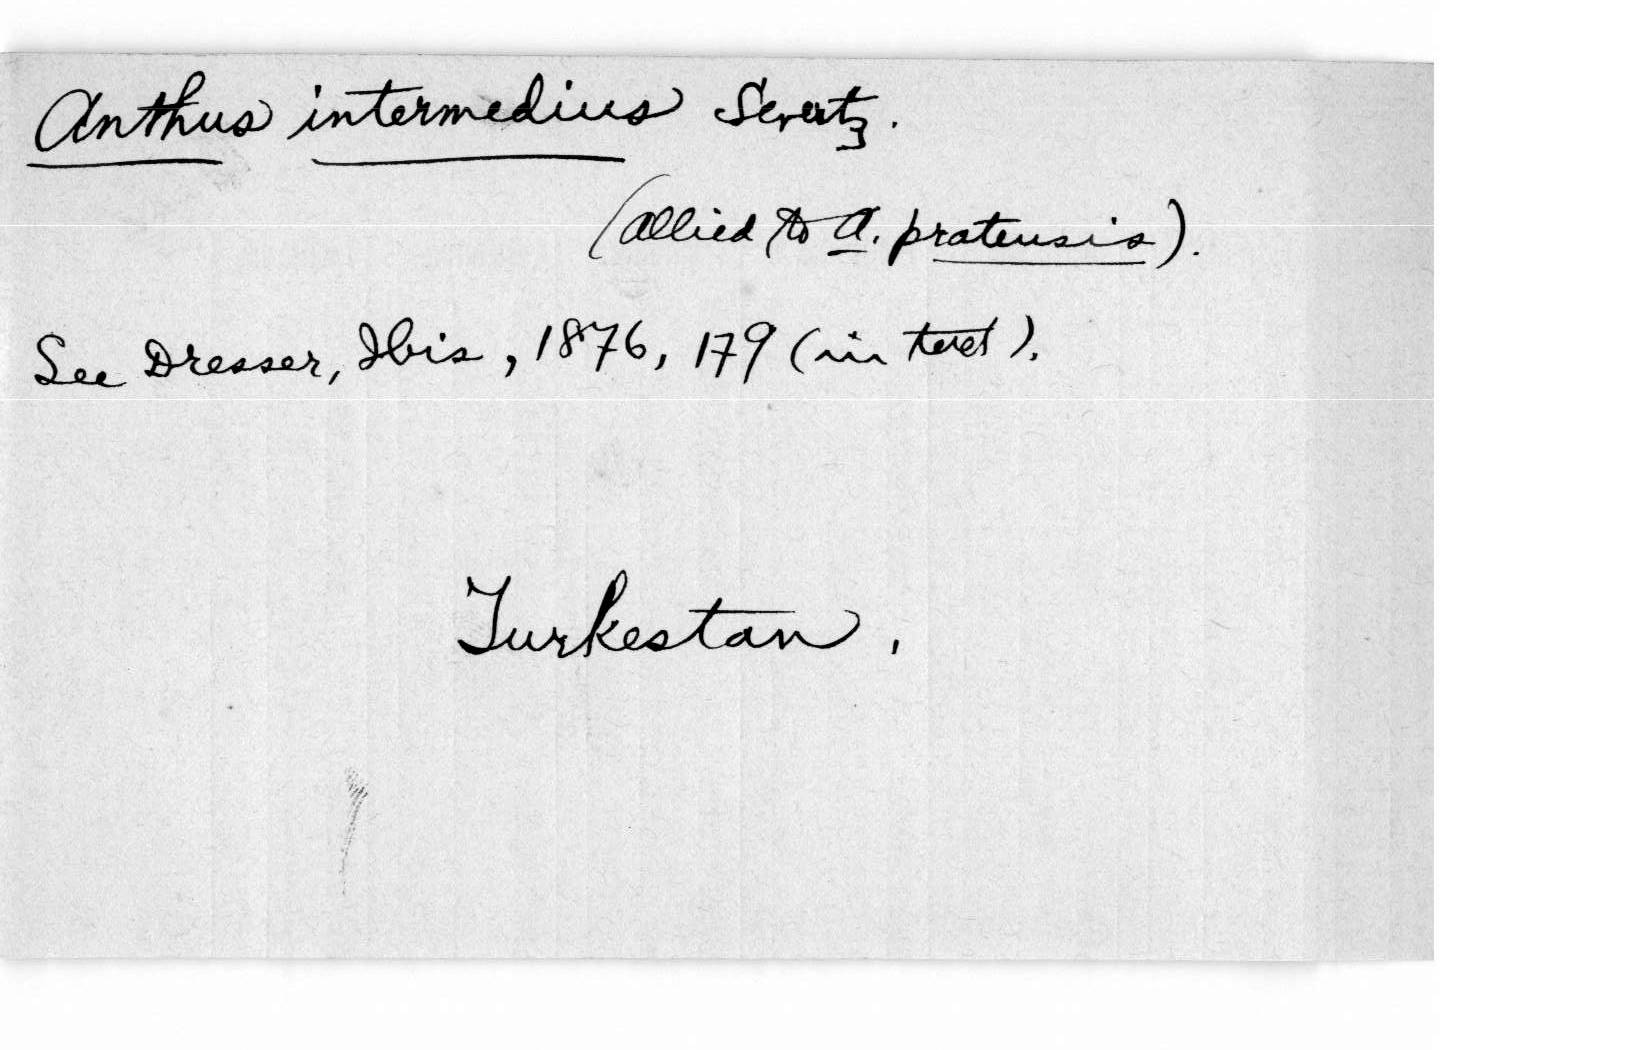 Anthus intermedius Severtz.
(allied to A. pratensis).
See Dresser, Ibis, 1876, 179 (in text).
Turkestan.